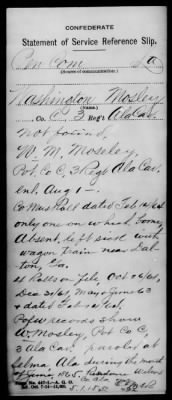 CONFEDERATE
Statement of Service Reference Slip.
Pen Com
(Source of communication.)
Washington Mosley
(Name.)
Co. C, 3 Reg't Ala Cav.
Not found,
W. M. Mosley,
Pvt. Co C, 3 Regt Ala Cav.
enl. Aug 1
Co Mus Roll dated Feb
only one on which borne,
Absent, left sick with
wagon train near Dal-
ton, Ga.
Rolls on file Oct
Dec 31/61 May + June 63
+ dated Feb
P of W records show
W. Mosley, Pvt Co C,
3 Ala Cav. paroled at
Selma Ala during the month
of June 1865, Residence
Co Ala